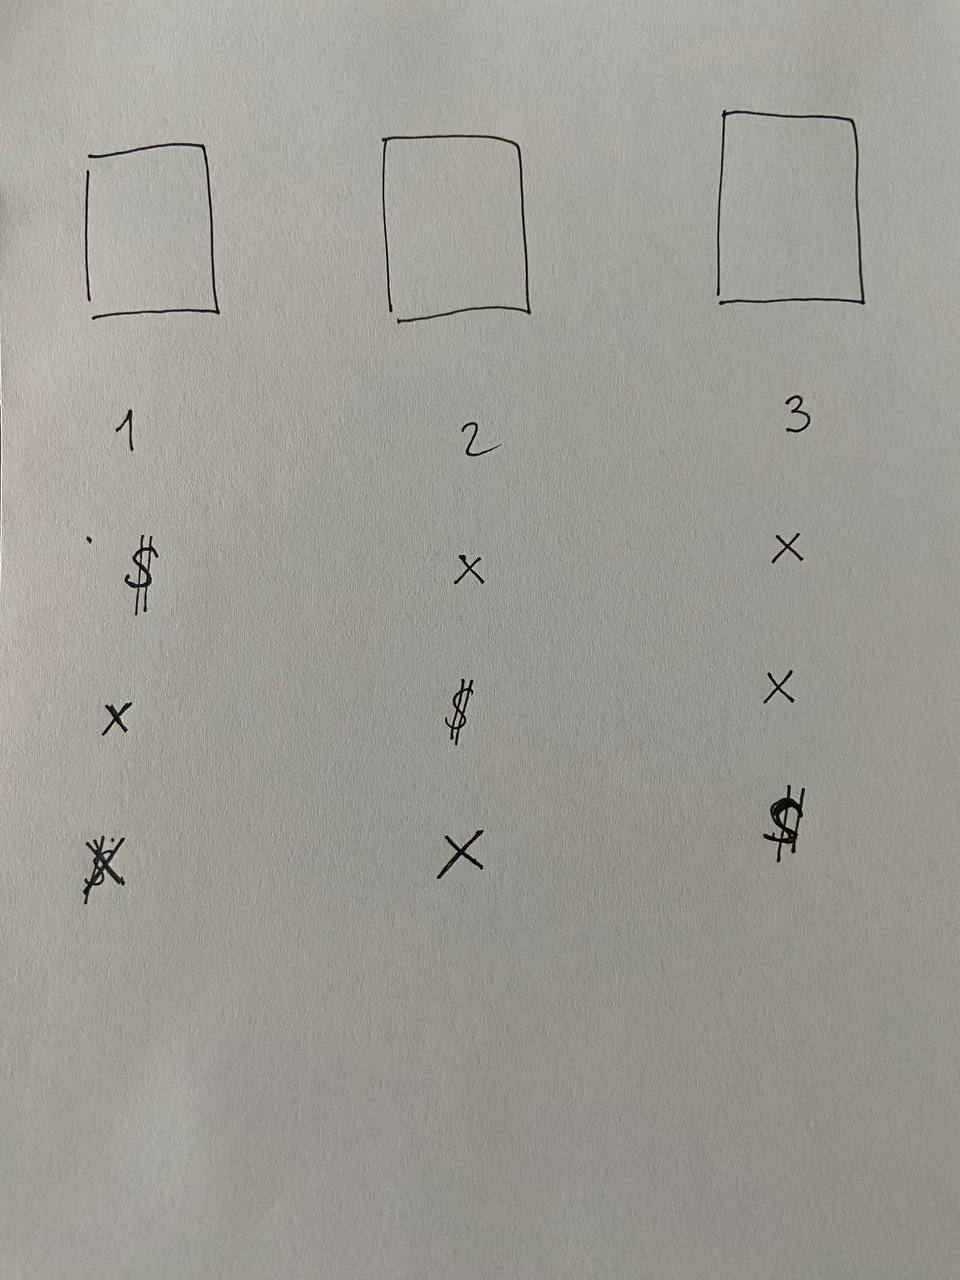 1 2 3
$ x x
x $ x
x x $